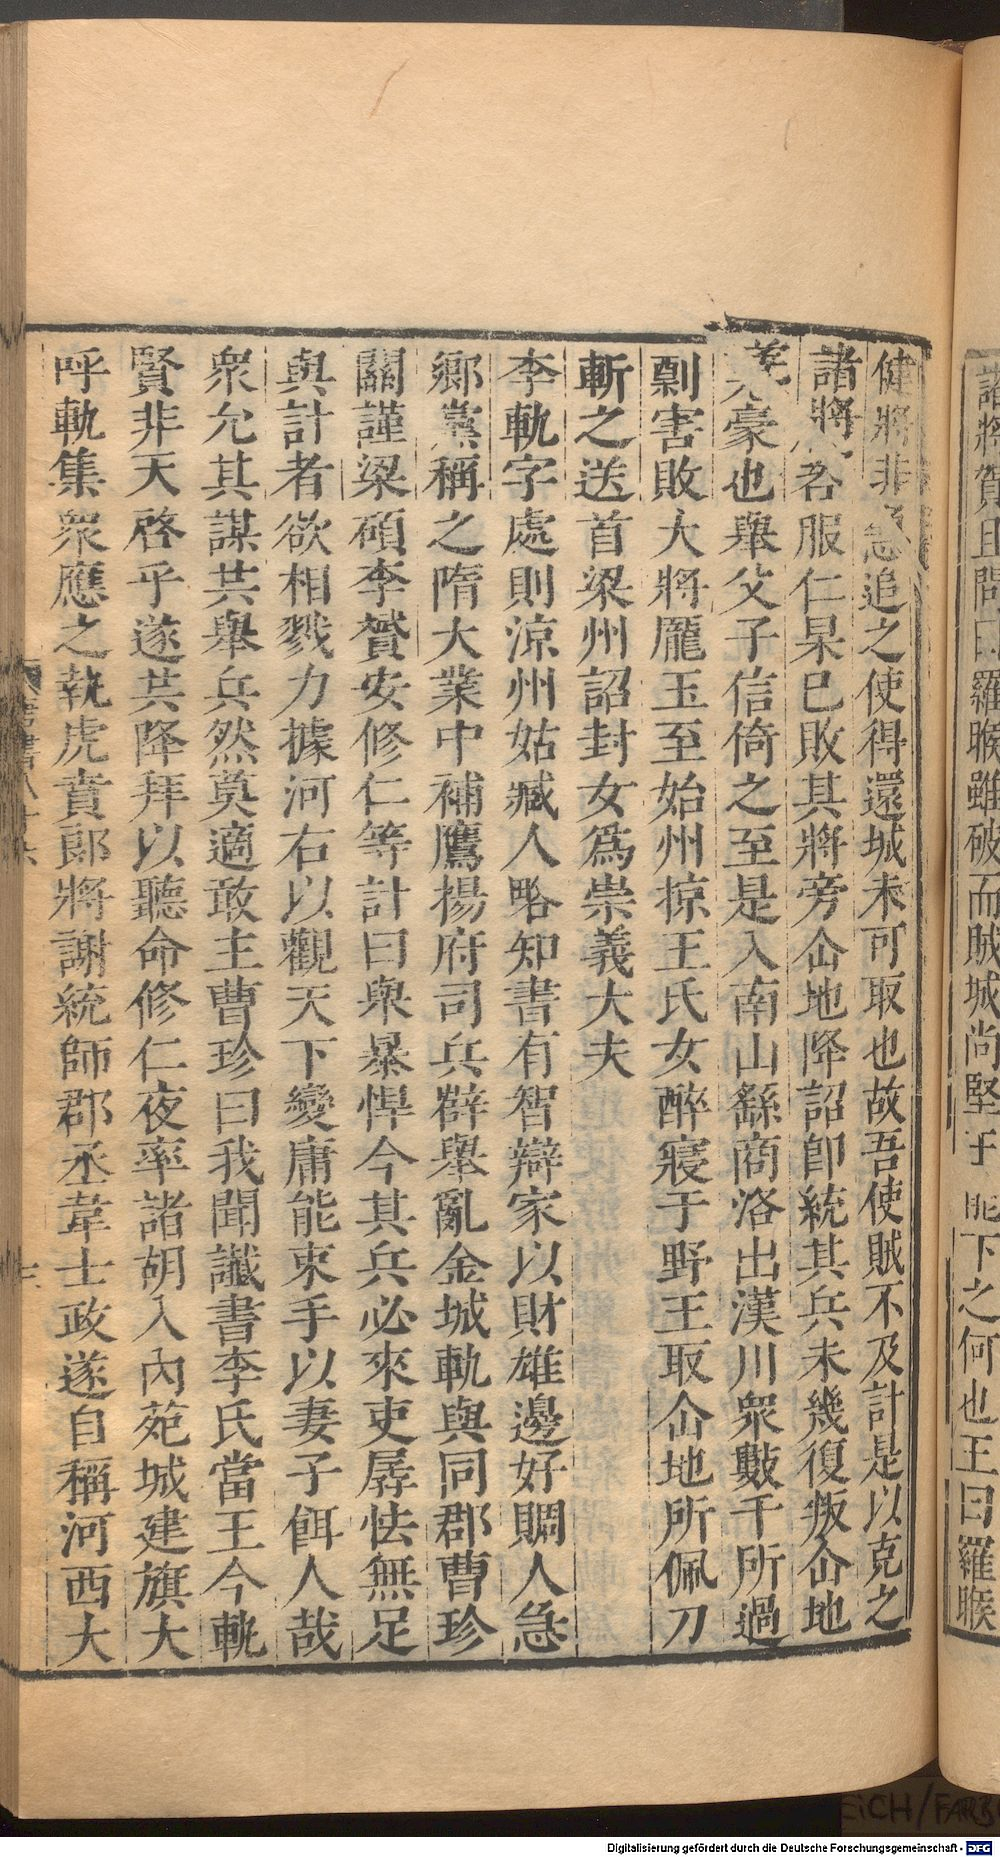 諸將賀且問曰羅睺雖破而賊城尚堅 下之何也王曰羅睺
健將非急追之使得還城未可取也故吾使賊不及計是以克之
諸將咨服仁杲已敗其將旁仚地降詔卽統其兵未幾復叛仚地
羌豪也舉父子信倚之至是入南山繇商洛出漢川衆數千所過
剽害敗大將龐玉至始州掠王氏女醉寢于野王取仚地所佩刀
斬之送首梁州詔封女爲崇義大夫
李軌字處則涼州姑臧人略知書有智辯家以財雄邊好賙人急
鄉黨稱之隋大業中補鷹揚府司兵薛舉亂金城軌與同郡曹珍
關謹梁碩李贇安修仁等計曰舉暴悍今其兵必來吏孱怯無足
與計者欲相戮力據河右以觀天下變庸能束手以妻子餌人哉
衆允其謀共舉兵然莫適敢主曹珍曰我聞讖書李氏當王今軌
賢非天啓乎遂共降拜以聽命修仁夜率諸胡入內苑城建旗大
呼軌集衆應之執虎賁郎將謝統師郡丞韋士政遂自稱河西大
EICH/FARB
Digitalisierung gefördert durch die Deutsche Forschungsgemeinschaft - DFG